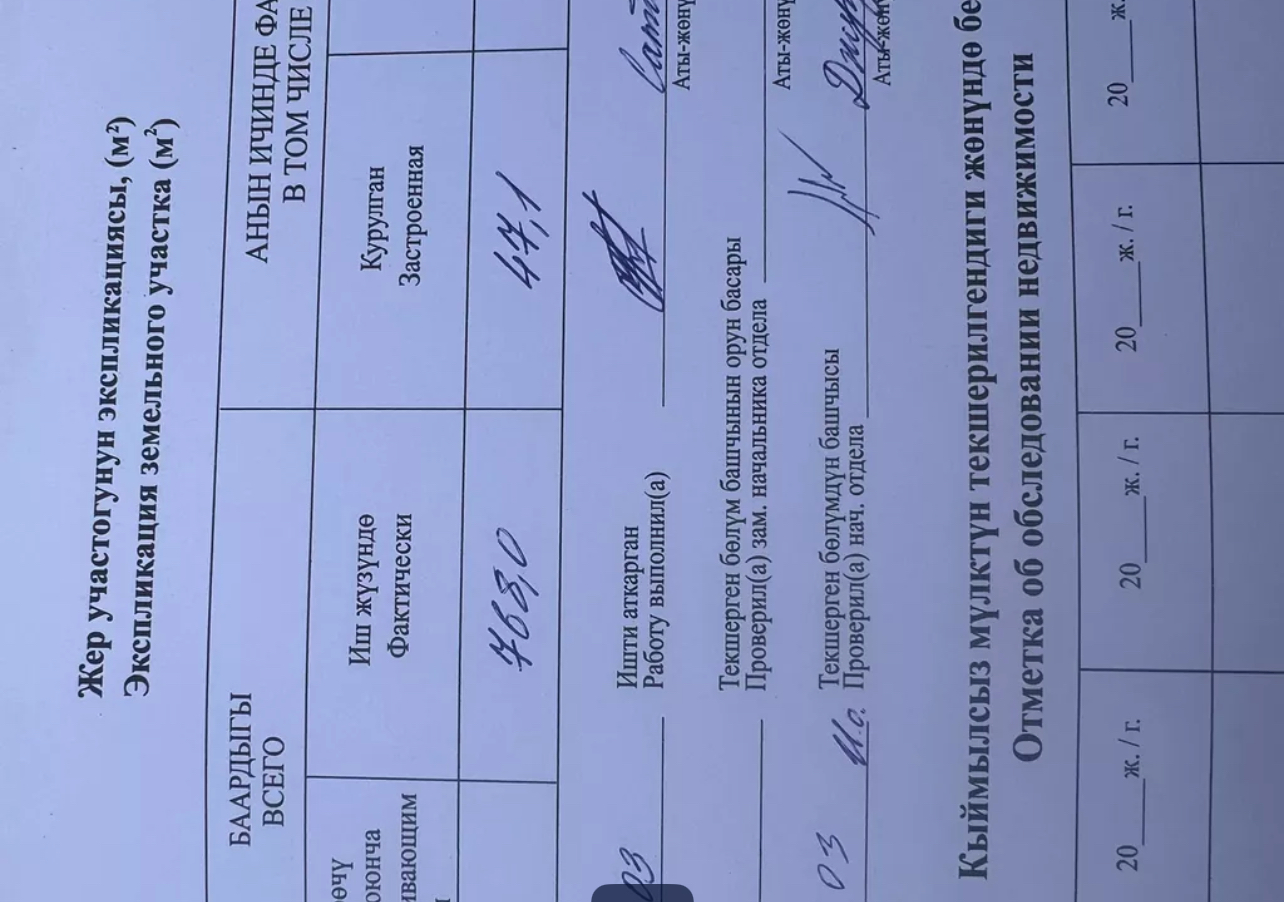 Жер участогунун экспликациясы, (м²)
Экспликация земельного участка (м²)
БААРДЫГЫ
ВСЕГО
АНЫН ИЧИНДЕ ФА
В ТОМ ЧИСЛЕ
Иш жүзүндө
Фактически
Курулган
Застроенная
768,0
47,1
03
Ишти аткарган
Работу выполнил(а)
Аты-жөнү
Текшерген бөлүм башчынын орун басары
Проверил(а) зам. начальника отдела
Аты-жөнү
03
Текшерген бөлүмдүн башчысы
И.о. Проверил(а) нач. отдела
Аты-жөнү
Кыймылсыз мүлктүн текшерилгендиги жөнүндө бе
Отметка об обследовании недвижимости
20____ж. / г. 20____ж. / г. 20____ж. / г. 20____ж.